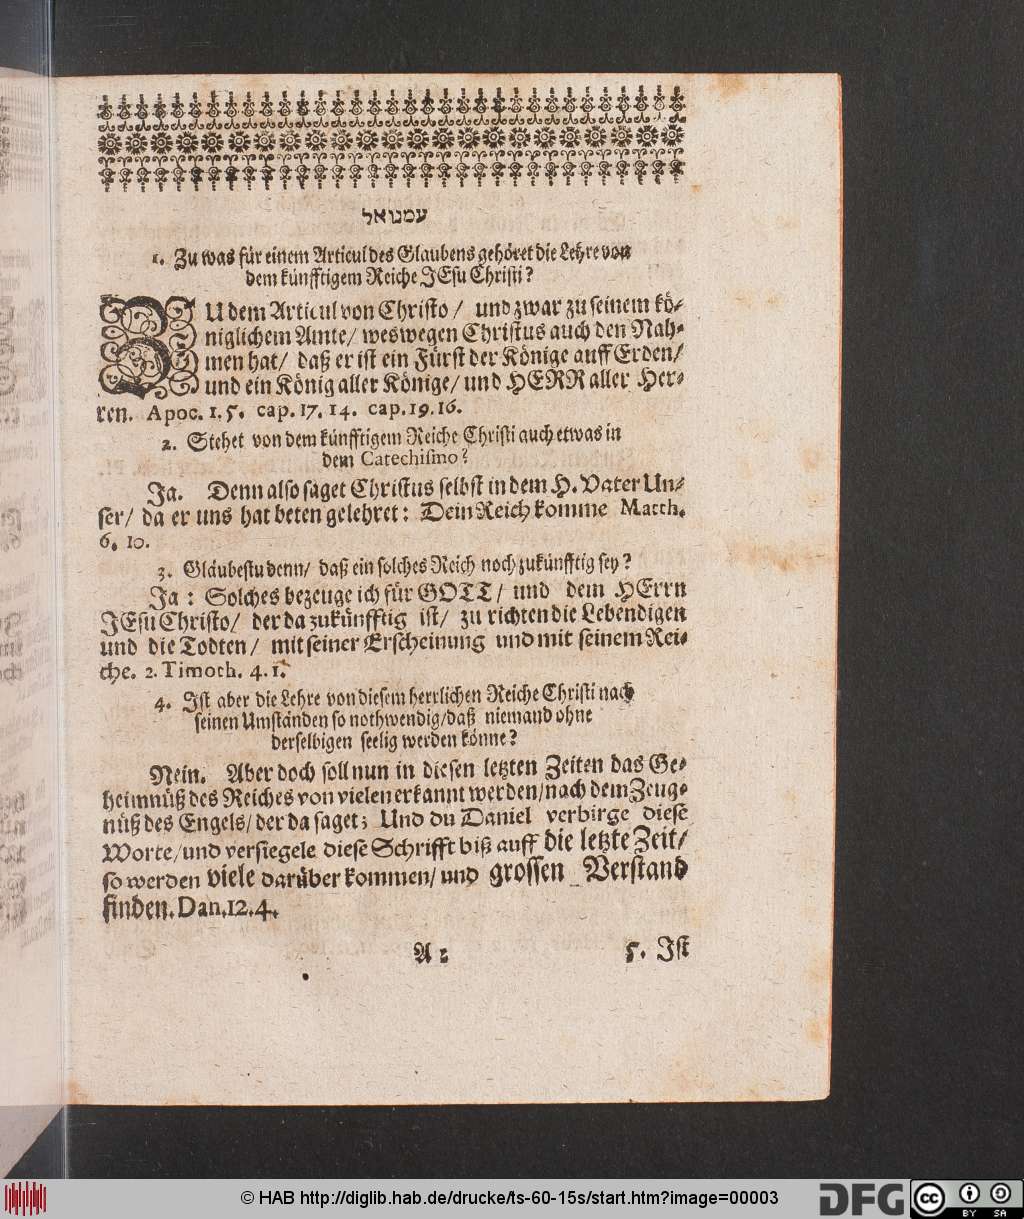 עמנואל
1. Zu was für einem Articul des Glaubens gehöret die Lehre von
dem künfftigem Reiche JEsu Christi?
ZU dem Articul von Christo / und zwar zu seinem kö-
niglichem Amte / weswegen Christus auch den Nah-
men hat / daß er ist ein Fürst der Könige auff Erden /
und ein König aller Könige / und HERR aller Her-
ren. Apoc. 1. 5. cap. 17. 14. cap. 19. 16.
2. Stehet von dem künfftigem Reiche Christi auch etwas in
dem Catechismo?
Ja. Denn also saget Christus selbst in dem H. Vater Un-
ser / da er uns hat beten gelehret: Dein Reich komme Matth.
6. 10.
3. Gläubestu denn / daß ein solches Reich noch zukünfftig sey?
Ja: Solches bezeuge ich für GOTT / und dem HErrn
JEsu Christo / der da zukünfftig ist / zu richten die Lebendigen
und die Todten / mit seiner Erscheinung und mit seinem Rei-
che. 2. Timoth. 4. 1.
4. Ist aber die Lehre von diesem herrlichen Reiche Christi nach
seinen Umständen so nothwendig / daß niemand ohne
derselbigen seelig werden könne?
Nein. Aber doch soll nun in diesen letzten Zeiten das Ge-
heimnüß des Reiches von vielen erkannt werden / nach dem Zeug-
nüß des Engels / der da saget; Und du Daniel verbirge diese
Worte / und versiegele diese Schrifft biß auff die letzte Zeit /
so werden viele darüber kommen / und grossen Verstand
finden. Dan. 12. 4.
A 2 5. Ist
© HAB http://diglib.hab.de/drucke/ts-60-15s/start.htm?image=00003
DFG
cc BY SA